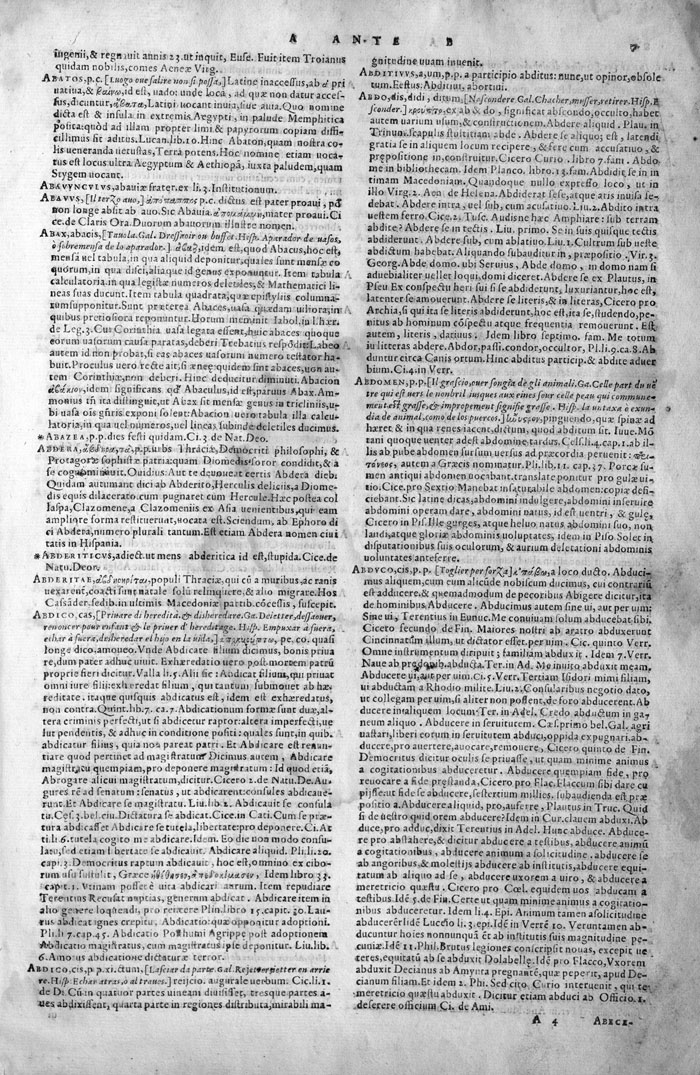 A ANTE B
7
ingenii, & regnauit annis 23. ut inquit, Euse. Fuit item Troianus
quidam nobilis, comes Aeneæ Virg.
ABATOS, p.c. [Luogo oue salire non si possa,] Latine inaccessus, ab
uatiua, & id est, uado: unde loca, ad quæ non datur acces-
sus, dicuntur, Latini uocant inuia, siue auia. Quo nomine
dicta est & insula in extremis Aegypti, in palude Memphitica
posita: quòd ad illam propter limi & papyrorum copiam diffi-
cillimus sit aditus. Lucan. lib. 10. Hinc Abaton, quam nostra co-
lis ueneranda uetustas, Terra potens. Hoc nomine etiam uoca-
tus est locus ultra Aegyptum & Aethiopiã, iuxta paludem, quam
Stygem uocant.
ABAVVNCVLVS, abauiæ frater. ex li. 3. Institutionum.
ABAVVS, [Il terzo auo,] p.c. dictus est pater proaui, pò
non longe absit ab auo. Sic Abauia. mater proaui. Ci
ce. de Claris Ora. Duorum abauorum illustre nomen.
ABAX, abacis, [Tauola. Gal. Dressoir ou buffet. Hisp. Aparador de uasos,
ò sobremensa de lo aparador.] idem est, quod Abacus, hoc est,
mensa uel tabula, in qua aliquid deponitur, quales sunt mensæ co
quorum, in qua disci, aliaque id genus exponuntur. Item tabula
calculatoria, in qua legistæ numeros deletiles, & Mathematici li-
neas suas ducunt. Item tabula quadrata, quæ epistyliis columna-
rum supponitur. Sunt præterea Abaces, uasa quædam uiliora, in
quibus pretiosiora reponuntur. Horum meminit Iabol. in l. hæres.
de Leg. 3. Cui Corinthia uasa legata essent, huic abaces quoque
eorum uasorum causa paratas, deberi Trebatius respõdit: Labeo
autem id non probat, si eas abaces uasorum numero testator ha-
buit. Proculus uero recte ait, si æneę quidem sint abaces, uon au-
tem Corinthiæ, non deberi. Hinc deducitur diminuti. Abacion
idem significans, idem quod Abaculus, id est, paruus Abax. Am-
monius tñ ita distinguit, ut Abax sit mensæ genus in tricliniis, u-
bi uasa ois gñris exponi solent Abacion uero tabula illa calcu-
latoria, in qua uel numeros, uel lineas, subinde deletiles ducimus.
* ABAZEA, p.p. dies festi quidam. Ci. 3 de Nat. Deo.
ABDERA, p.p. urbs Thraciæ, Democriti philosophi, &
Protagoræ sophistæ patria: quam Diomedis soror condidit, & à
se cognominauit. Ouidius: Aut te deuoueat certis Abdera dieb.
Quidam autumant dici ab Abderito, Herculis deliciis, a Diome-
dis equis dilacerato. cum pugnaret cum Hercule. Hæc postea col
lapsa, Clazomene, a Clazomeniis ex Asia uenientibus, qui eam
ampliore forma restituerunt, uocata est. Sciendum, ab Ephoro di-
ci ei Abdera, numero plurali tantum. Est etiam Abdera nomen ciui
tatis in Hispania.
* ABDERITICVS, adiect. ut mens abderitica id est, stupida. Cice. de
Natu. Deor.
ABDERITAE, populi Thraciæ, qui cũ a muribus, ac ranis
uexarent, coacti sunt natale solũ relinquere, & alio migrare. Hos
Cassãder. sedib. in ultimis Macedoniæ partib. cõcessis, suscepit.
ABDICO, cas, [Priuare di heredità, & dishereda re. Ga. Deietter, desauoer,
renoncer pour enfant & le priuer d' heredetage. Hisp. Empuxar à fuera,
echar à fuera, desheredar el hijo en la uida,] pe. co. quasi
longe dico. amoueo. Vnde Abdicare filium dicimus, bonis priua
re, dum pater adhuc uiuit. Exhæredatio uero post mortem patrũ
proprie fieri dicitur. Valla li. 5. Alii sic: Abdicat filium, qui priuat
omni iure filii: exhæredat filium, qui tantum submouet ab hæ-
reditate. itaque quisquis abdicatus est, idem est exhæredatus,
non contra. Quint. lib. 7. ca. 7. Abdicationum formæ sunt duæ, al-
tera criminis perfecti, ut si abdicetur raptor: altera imperfecti, ue
lut pendentis, & adhuc in conditione positi: quales sunt, in quib.
abdicatur filius, quia non pareat patri. Et Abdicare est renun-
tiare quod pertinet ad magistratum Dicimus autem, Abdicare
magistratu quempiam, pro deponere magistratum: Id quod etiã,
Abrogare alicui magistratum, dicitur. Cicero 1. de Natu. De. Au-
gures ré ad senatum: senatus, ut abdicarent: consules abdicaue-
runt. Et Abdicare se magistratu. Liu. lib. 2. Abdicauit se consula
tu. Ces. 3. bel. ciu. Dictatura se abdicat. Cice. in Cati. Cum se præ-
tura abdicasset Abdicare se tutela, libertate: pro deponere. Ci. At
ti. li. 6. tutela cogito me abdicare. Idem. Eo die non modo consu-
latu, sed etiam libertate se abdicauit. Abdicare aliquid. Pli. li. 20.
capi. 3. Democritus raptum abdicauit, hoc est, omnino ex cibo-
rum usu sustulit, Græce Idem libro 33.
capit. 1. Vtinam posset è uita abdicari aurum. Item repudiare
Terentius Recusat nuptias, generum abdicat. Abdicare item in
alio genere loquendi, pro reiicere Plin. libro 15. capit. 30. Lau-
rus abdicat ignes crepitu. Abdicatio: quæ opponitur adoptioni.
Pli. li. 7. cap. 45. Abdicatio Posthumi Agrippę post adoptionem
Abdicatio magistratus, cum magistratus ipse deponitur. Liu. lib.
6. Amor us abdicatione dictaturæ terror.
ABDICO, cis, p.p. xi. ctum, [Lasciar da parte. Gal. Reietter, ietter en arrie
re. Hisp Echar atras, ò al traues.] reijcio. augurale uerbum. Cic. li. 1.
de Di. Cũ in quatuor partes uineam diuisisset, tresque partes a-
ues abdixissent, quarta parte in regiones distributa, mirabili ma-
gnitudine uuam inuenit.
ABDITIVVS, a, um, p.p. a participio abditus: nunc, ut opinor, obsole
tum. Festus. Abditiui, abortiui.
ABDO, dis, didi, ditum, [Nascondere Gal. Chacher, musser, retirer. Hisp. E-
sconder.] ex ab & do, significat abscondo, occulto, habet
autem uarium usum, & constructionem. Abdere aliquid. Plau. in
Trinum. scapulis stuititiam abde. Abdere se aliquo; est, latendi
gratia se in aliquem locum recipere, & fere cum accusatiuo, &
præpositione in, construitur. Cicero Curio. libro 7. fam. Abdo
me in bibliothecam. Idem Planco. libro. 13. fam. Abdidit se in in
timam Macedoniam. Quandoque nullo expresso loco, ut in
illo Virg. 2. Aen. de Helena. Abdiderat sese, atque aris inuisa se-
debat. Abdere intra, uel sub, cum accusatiuo. Liu. 2. Abdito intra
uestem ferro. Cice. 2. Tusc. Audisne hæc Amphiare: sub terram
abdite? Abdere se in tectis. Liu. primo. Se in suis quisque tectis
abdiderunt. Abdere sub, cum ablatiuo. Liu. 1. Cultrum sub ueste
abdictum habebat. Aliquando subauditur in, præpositio. Vir. 3.
Georg. Abde domo. ubi Seruius, Abde domo, in domo nam si
aduebialiter uellet loqui, domi diceret. Abdere se ex Plautus, in
Pseu Ex conspectu heri sui si se abdiderunt, luxuriantur, hoc est,
latenter se amouerunt. Abdere se literis, & in literas, Cicero pro
Archia, si qui ita se literis abdiderunt, hoc est, ita se, studendo, pe-
nitus ab hominum cõspectu atque frequentia remouerunt. Est
autem, literis, datiuus. Idem libro septimo. fam. Me totum
in litteras abdere. Abdor, passi. condor, occultor, Pli. li. 9. ca. 8. Ab
duntur circa Canis ortum. Hinc abditus particip. & abdite aduer
bium. Ci. 4. in Verr.
ABDOMEN, p.p. [Il grascio, ouer songia de gli animali. Ga. Celle part du uẽ
tre qui est uers le nonbril iusques aux eines sur celle peau qui commune-
ment est grasse, & impropement signifie gresse. Hisp. la untaxa ò exun-
dia de animal, como de los puercos.] pinguendo, quæ spinæ ad
hæret & in qua renes iacent, dictum, quòd abditum sit. Iuue. Mõ
tani quoque uenter adest abdomine tardus. Cels. li. 4. cap. 1. ab il-
lis ab pube abdomen sursum uersus ad præcordia peruenit:
a Græcis nominatur. Pli. lib. 11. cap. 37. Porcæ su-
men antiqui abdomen uocabant. translate ponitur pro gulæ ui-
tio. Cice. pro Sextio Manebat insaturabile abdomen: copiæ defi-
ciebant. Sic latine dicas, abdomini indulgere, abdomini inseruire
abdomini operam dare, abdomini natus, id est uentri, & gulę,
Cicero in Pis. Ille gurges, atque heluo natus abdomini suo, non
laudi, atque gloriæ abdominis uoluptates, idem in Piso Solet in
disputationibus suis oculorum, & aurium delectationi abdominis
uoluptates anteferre.
ABDVCO, cis, p.p. [Toglier per forza,] a loco ducto. Abduci-
mus aliquem, cum cum alicũde nobiscum ducimus, cui contrariũ
est adducere, & quemadmodum de pecoribus Abigere dicitur, ita
de hominibus Abducere. Abducimus autem sine ui, aut per uim:
Sine ui, Terentius in Eunuc. Me conuiuam solum abducebat sibi.
Cicero secundo de Fin. Maiores nostri ab aratro abduxerunt
Cincinnatum illum, ut dictator esset. per uim. Cic. quinto Verr.
Omne instrumentum diripuit; familiam abduxit. Idem 7. Verr.
Naue ab prędonib. abducta. Ter. in Ad. Me inuito abduxit meam,
Abducere ui, aut per uim. Ci. 5. Verr. Tertiam Isidori mimi filiam,
ui abductam a Rhodio milite. Liu. 2. Consularibus negotio dato,
ut collegam per uim, si aliter non possent, de foro abducerent. Ab
ducere in aliquem locum Ter. in Adel. Credo abductum in ga-
neum aliquo. Abducere in seruitutem. Cæs. primo bel. Gal. agri
uastari, liberi eorum in seruitutem abduci, oppida expugnari. ab-
ducere, pro auertere, auocare, remouere, Cicero quinto de Fin.
Democritus dicitur oculis se priuasse, ut quam minime animus
a cogitationibus abduceretur. Abducere quempiam fide, pro
reuocare a fide pręstanda. Cicero pro Flac. Flaccum sibi dare cu
pijsse, ut fide se abduceret, sestertium millies. subaudienda est præ
positio a. Abducere aliquid, pro, auferre, Plautus in Truc. Quid
si de nostro quid orem abducere? Idem in Cur. clauem abduxi. Ab
duce, pro adduc, dixit Terentius in Adel. Hunc abduce. Abduce-
re pro abstahere, & dicitur abducere a testibus, abducere animũ
a cogitationibus, abducere animum a solicitudine, abducere se
ab angoribus, & molestijs abducere ab institutis, abducere equi-
tatum ab aliquo ad se, abducere uxorem a uiro, & abducere a
meretricio quæstu. Cicero pro Cœl. equidem uos abducam a
testibus. Idẽ 5. de Fin. Certe ut quam minime animus a cogitatio-
nibus abduceretur. Idem li. 4. Epi. Animum tamen a solicitudine
abducerẽt Idẽ Luceio li. 3. epi. Idẽ in Verrẽ 10. Veruntamen ab-
ducuntur hoies nonnunquã et ab institutis suis magnitudine pe-
cuniæ. Idẽ 11. Phil. Brutus legiones conscripsit nouas, excepit ue
teres, equitatũ ab se abduxit Dolabellę. Idẽ pro Flacco, Vxorem
abduxit Decianus ab Amynta pregnantẽ, quæ peperit, apud De-
cianum filiam. Et idem 2. Phi. Sed cito Curio interuenit, qui te
meretricio quæstu abduxit. Dicitur etiam abduci ab Officio. i.
deserere officium Ci. de Ami.
A 4 ABECE-